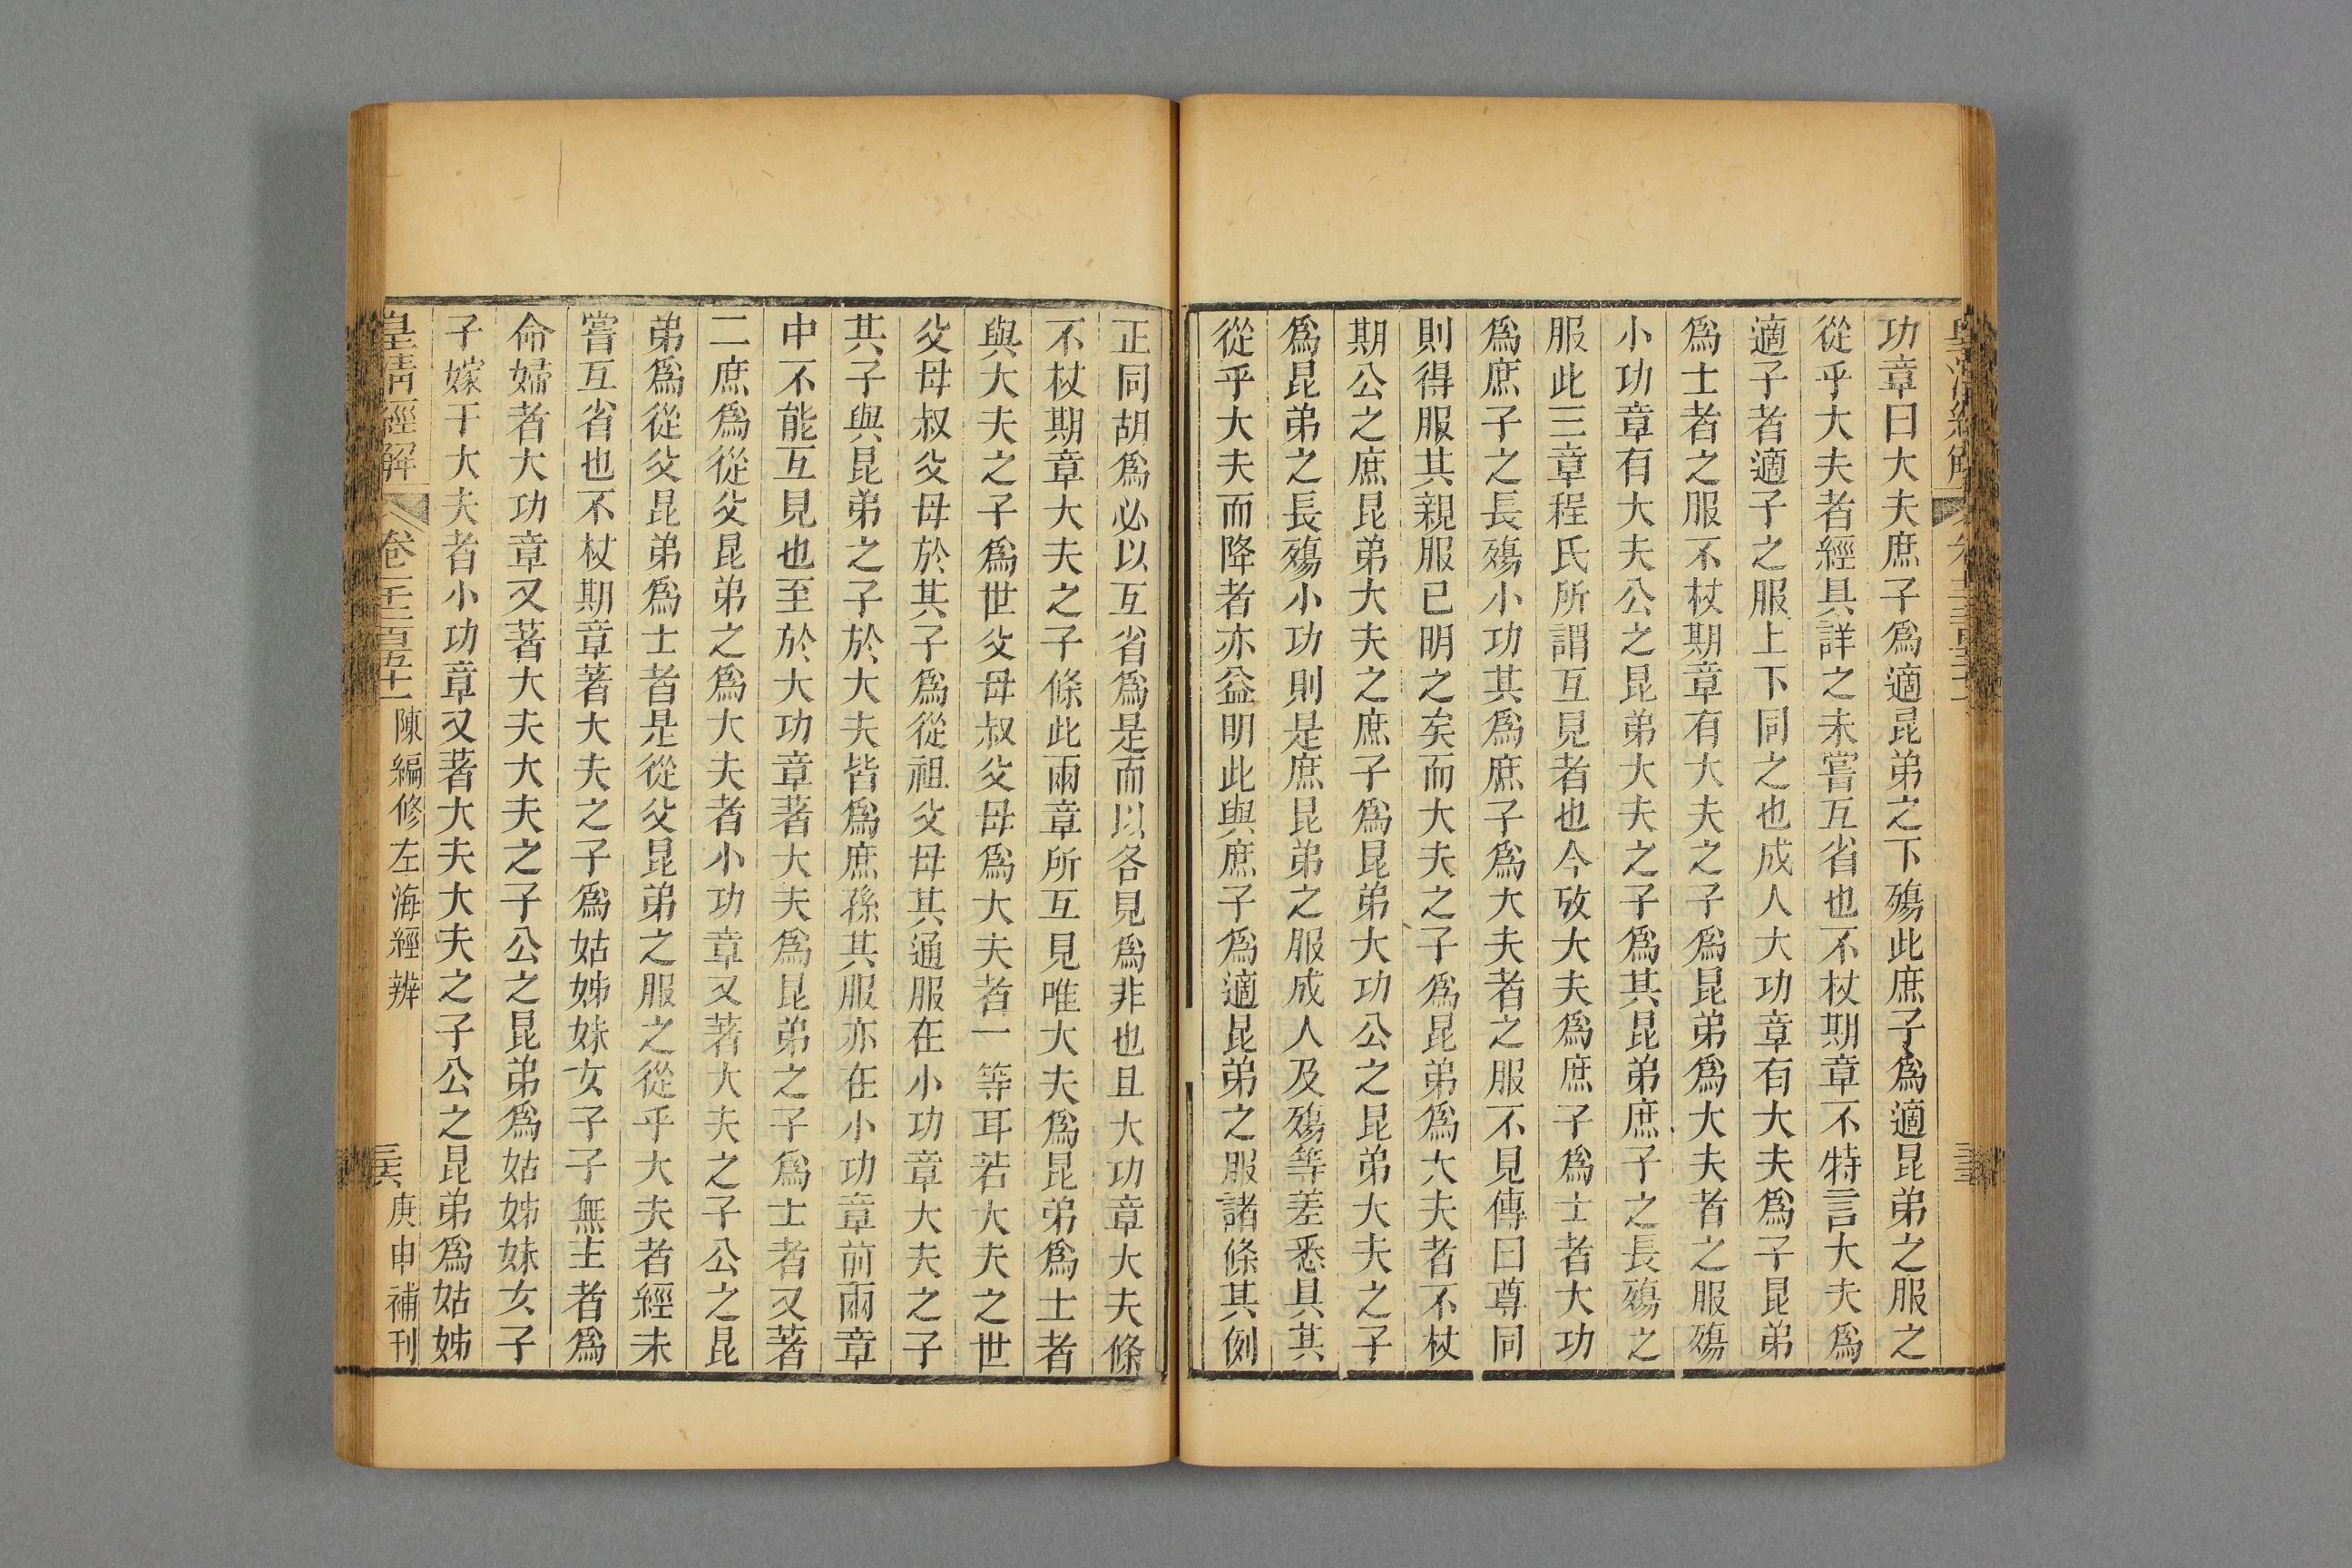 功章曰大夫庶子爲適昆弟之下殤此庶子爲適昆弟之服之
從乎大夫者經具詳之未嘗互省也不杖期章不特言大夫爲
適子者適子之服上下同之也成人大功章有大夫爲子昆弟
爲士者之服不杖期章有大夫之子爲昆弟爲大夫者之服殤
小功章有大夫公之昆弟大夫之子爲其昆弟庶子之長殤之
服此三章程氏所謂互見者也今攷大夫爲庶子爲士者大功
爲庶子之長殤小功其爲庶子爲大夫者之服不見傳曰尊同
則得服其親服已明之矣而大夫之子爲昆弟爲大夫者不杖
期公之庶昆弟大夫之庶子爲昆弟大功公之昆弟大夫之子
爲昆弟之長殤小功則是庶昆弟之服成人及殤等差悉具其
從乎大夫而降者亦益明此與庶子爲適昆弟之服諸條其例
正同胡爲必以互省爲是而以各見爲非也且大功章大夫條
不杖期章大夫之子條此兩章所互見唯大夫爲昆弟爲士者
與大夫之子爲世父母叔父母爲大夫者一等耳若大夫之世
父母叔父母於其子爲從祖父母其通服在小功章大夫之子
其子與昆弟之子於大夫皆爲庶孫其服亦在小功章前兩章
中不能互見也至於大功章著大夫爲昆弟之子爲士者又著
二庶爲從父昆弟之爲大夫者小功章又著大夫之子公之昆
弟爲從父昆弟爲士者是從父昆弟之服之從乎大夫者經未
嘗互省也不杖期章著大夫之子爲姑姊妹女子子無主者爲
命婦者大功章又著大夫大夫之子公之昆弟爲姑姊妹女子
子嫁于大夫者小功章又著大夫大夫之子公之昆弟爲姑姊
皇清經解 卷一千二百五十一 陳編修左海經辨 庚申補刊